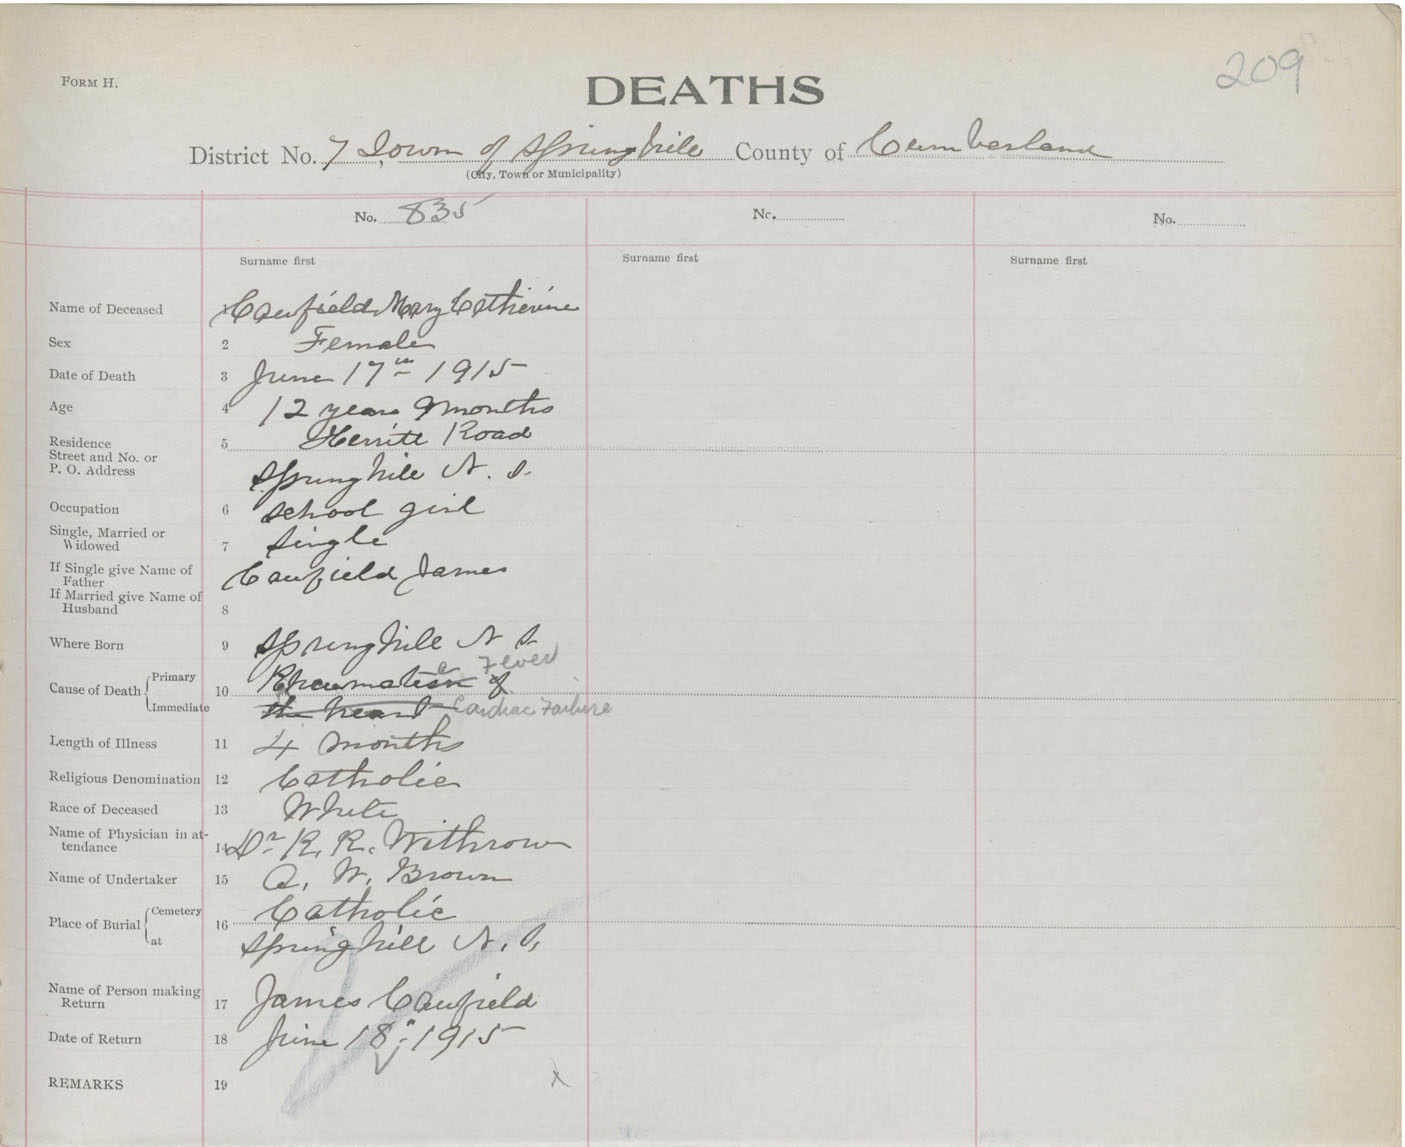 209
FORM H.
DEATHS
District No. 7 Town of Springhill County of Cumberland
(City, Town or Municipality)
No. 835 No. No.
Surname first Surname first Surname first
Name of Deceased Caufield Mary Catherine
Sex 2 Female
Date of Death 3 June 17th 1915
Age 4 12 years 9 months
Residence 5 Herrite Road
Street and No. or
P. O. Address Springhill N. S.
Occupation 6 School girl
Single, Married or
Widowed 7 Single
If Single give Name of
Father Caufield James
If Married give Name of
Husband 8
Where Born 9 Springhill N S
Cause of Death Primary 10 Rheumatism of
Rheumatic Fever
Immediate the heart Cardiac Failure
Length of Illness 11 4 months
Religious Denomination 12 Catholic
Race of Deceased 13 White
Name of Physician in at-
tendance 14 Dr R. R. Withrow
Name of Undertaker 15 A. W. Brown
Place of Burial Cemetery 16 Catholic
at Springhill N. S.
Name of Person making
Return 17 James Caufield
Date of Return 18 June 18" 1915
REMARKS 19 x